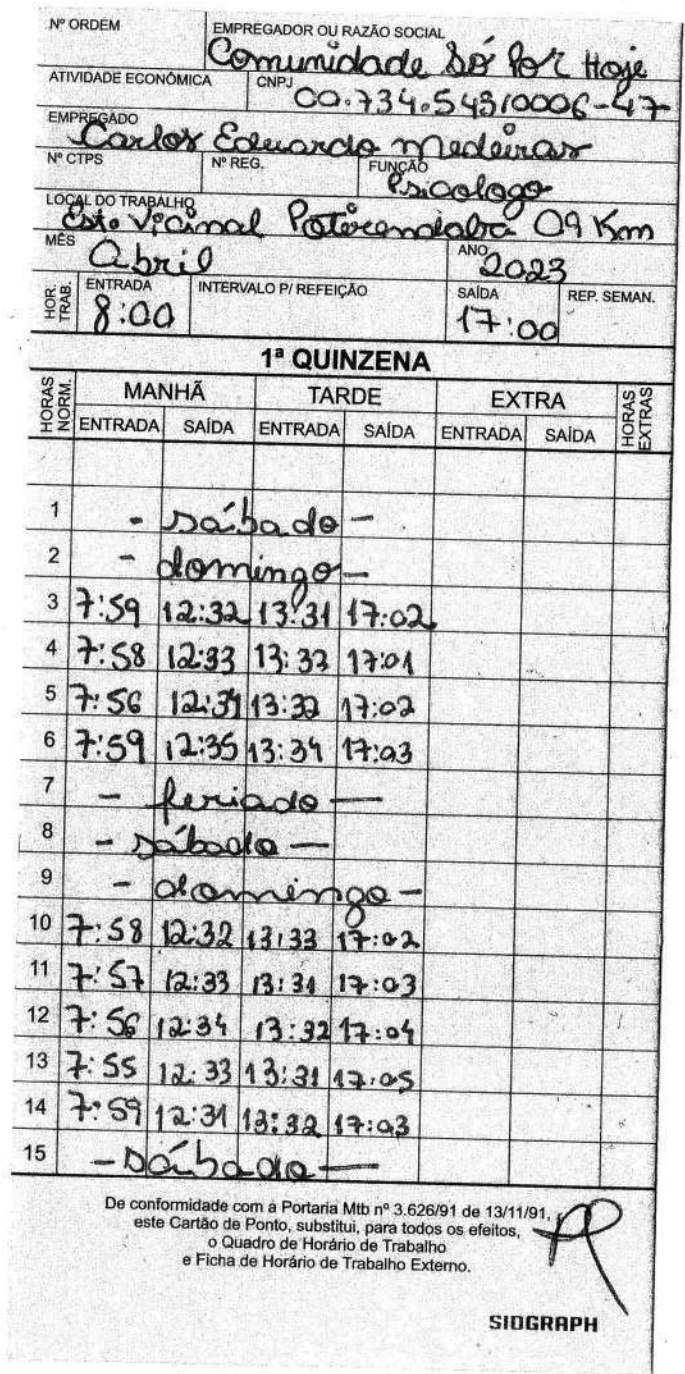 Nº ORDEM EMPREGADOR OU RAZÃO SOCIAL
Comunidade Só Por Hoje
ATIVIDADE ECONÔMICA CNPJ
00.734.549/0006-47
EMPREGADO
Carlos Eduardo Medeiras
Nº CTPS Nº REG. FUNÇÃO
Psicologo
LOCAL DO TRABALHO
Est. Vicinal 09 Km
MÊS Abril ANO 2023
HOR. TRAB. ENTRADA INTERVALO P/ REFEIÇÃO SAÍDA REP. SEMAN.
8:00 17:00
1ª QUINZENA
HORAS NORM. MANHÃ TARDE EXTRA HORAS EXTRAS
ENTRADA SAÍDA ENTRADA SAÍDA ENTRADA SAÍDA
1 - sábado -
2 - domingo -
3 7:59 12:32 13:31 17:02
4 7:58 12:33 13:33 17:01
5 7:56 12:34 13:32 17:02
6 7:59 12:35 13:34 17:03
7 - feriado -
8 - sábado -
9 - domingo -
10 7:58 12:32 13:33 17:02
11 7:57 12:33 13:31 17:03
12 7:56 12:34 13:32 17:04
13 7:55 12:33 13:31 17:05
14 7:59 12:31 13:32 17:03
15 - sábado -
De conformidade com a Portaria Mtb nº 3.626/91 de 13/11/91,
este Cartão de Ponto, substitui, para todos os efeitos,
o Quadro de Horário de Trabalho
e Ficha de Horário de Trabalho Externo.
SIDGRAPH